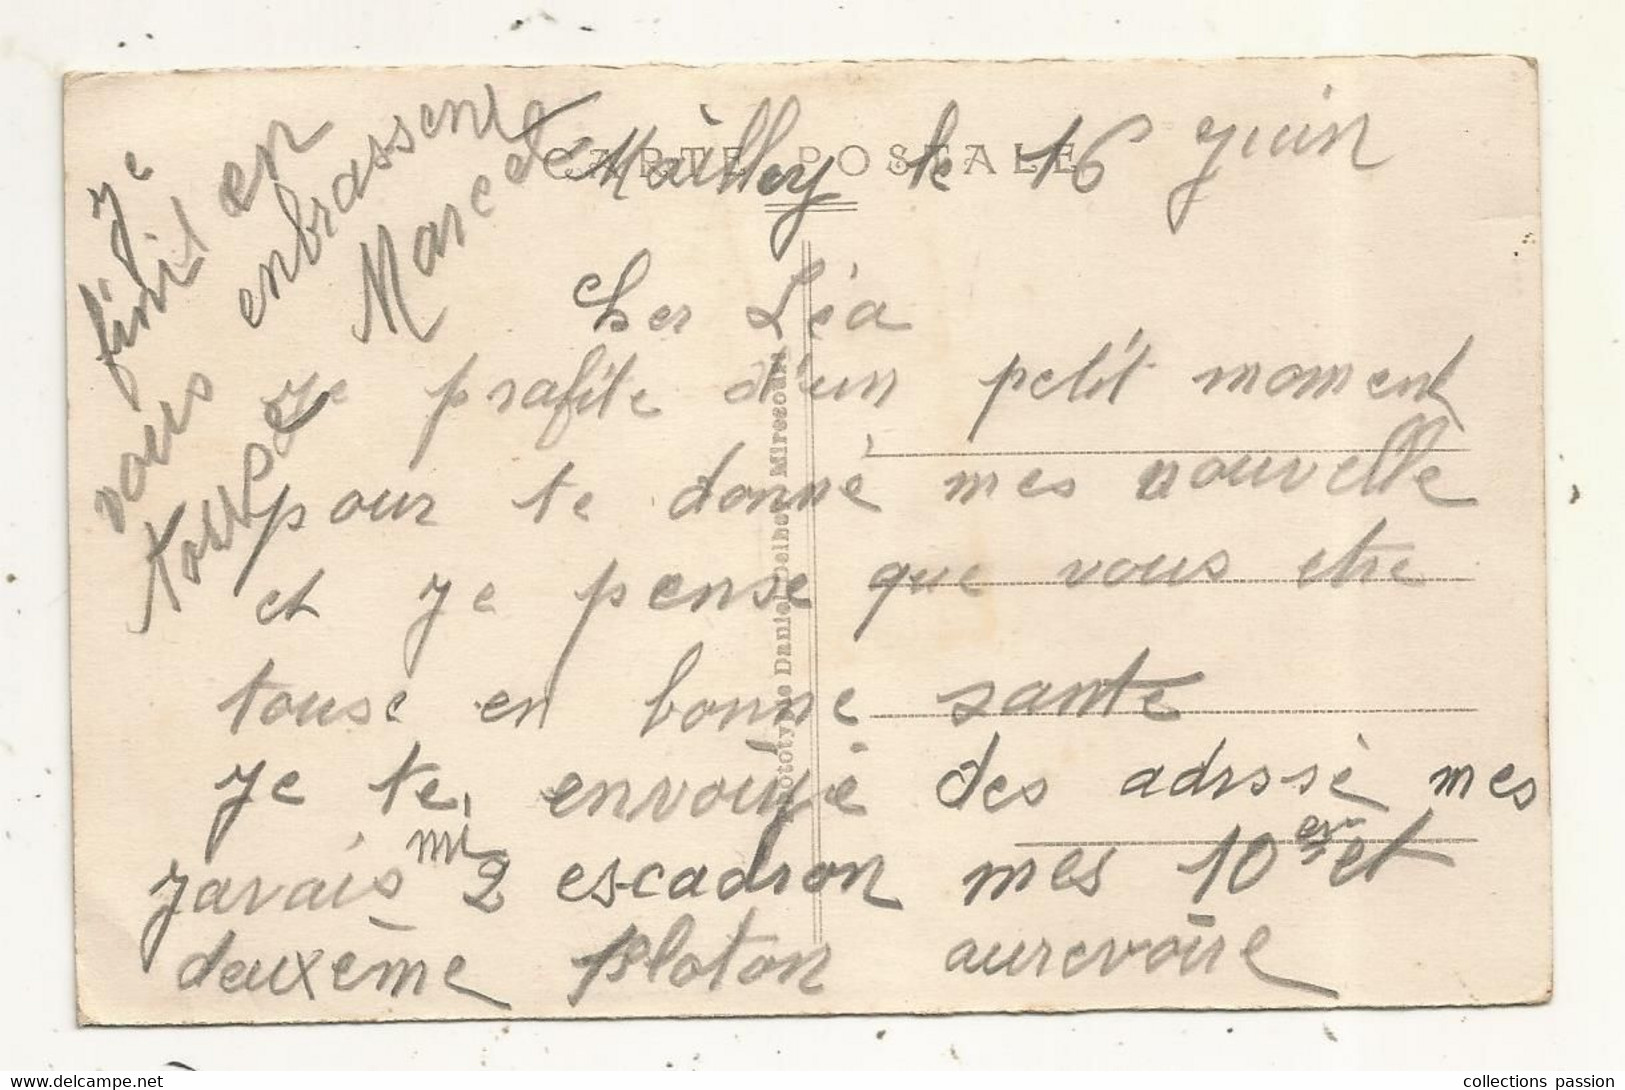 CARTE POSTALE
Mailley le 16 Juin
Cher Léa
Je profite d'un petit moment
pour te donné mes nouvelle
et je pense que vous etre
touse en bonne sante
Je te envoyé des adrssè mes
javais mi 2 escadron mes 10 et
deuxème ploton aurevoire
Je
finit en
vous enbrassent
touse Marcel
Phototypie Daniel Delbey Mirecourt
collections passion